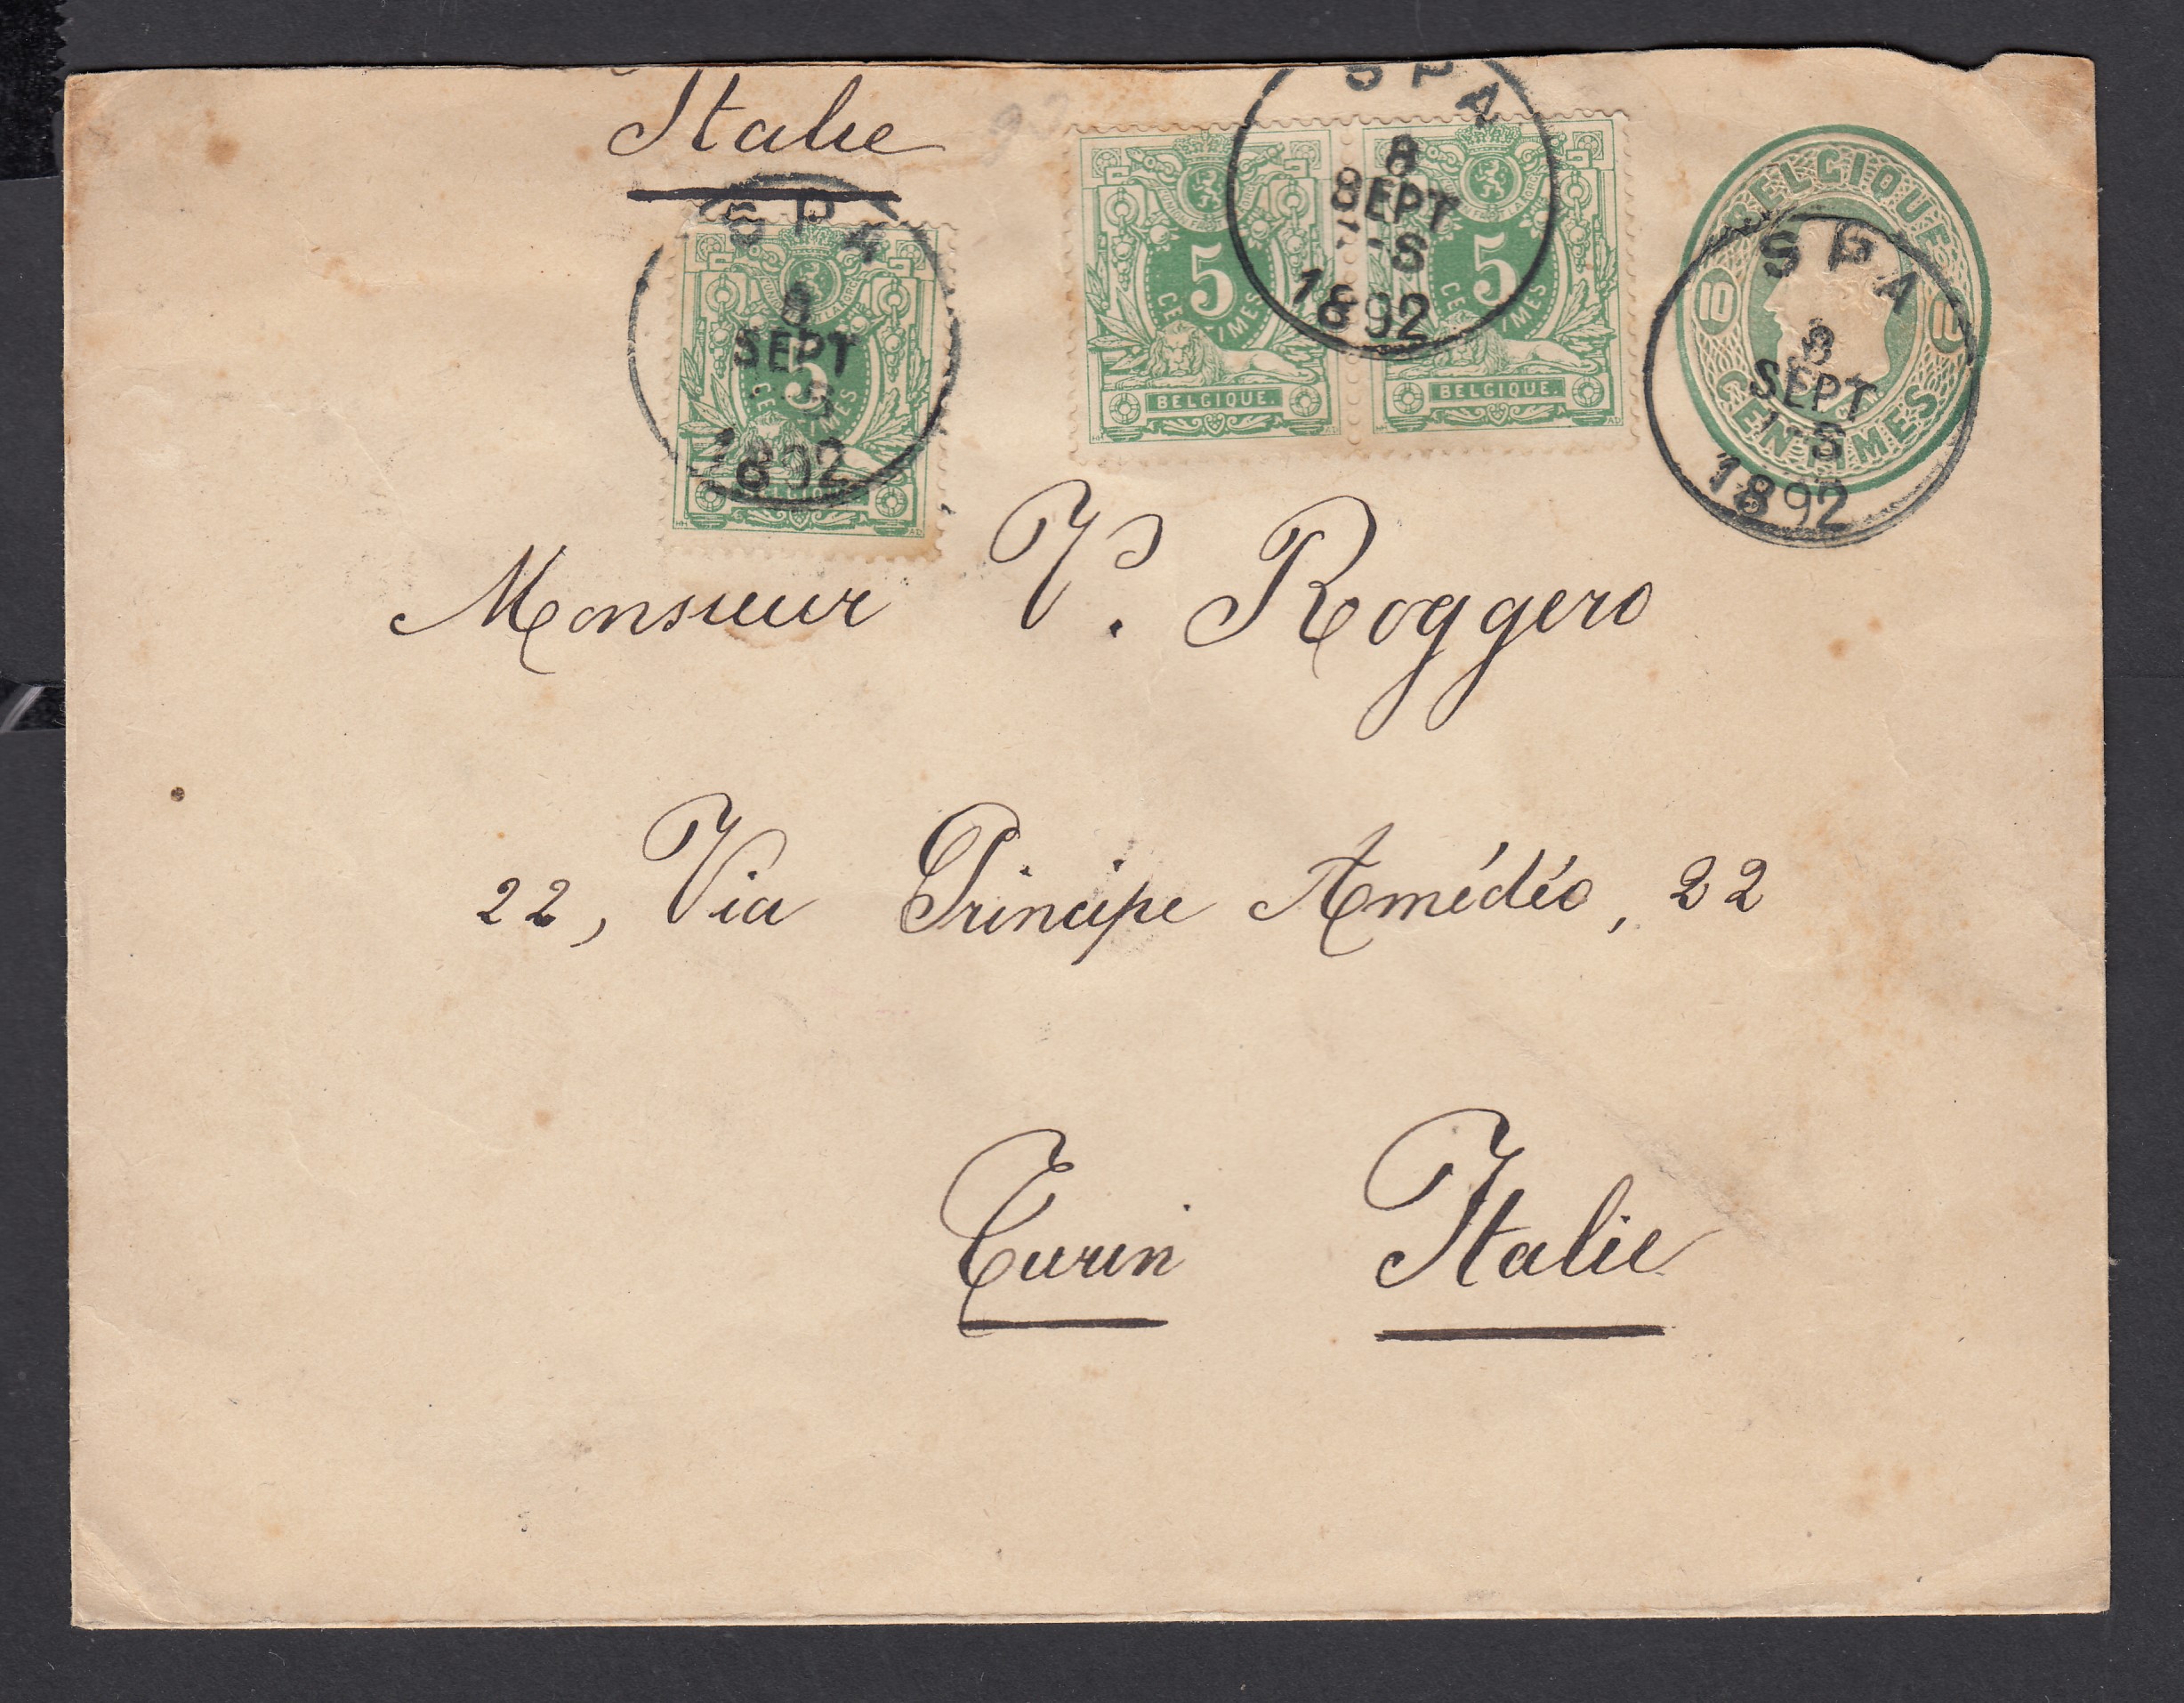 Italie
SPA
8
SEPT
1892
5
CENTIMES
BELGIQUE.
SPA
8
SEPT
-S
1892
5
CENTIMES
BELGIQUE.
5
CENTIMES
BELGIQUE.
BELGIQUE
10
10
CENTIMES
SPA
8
SEPT
-S
1892
Monsieur V. Roggero
22, Via Principe Amédéo, 22
Turin Italie